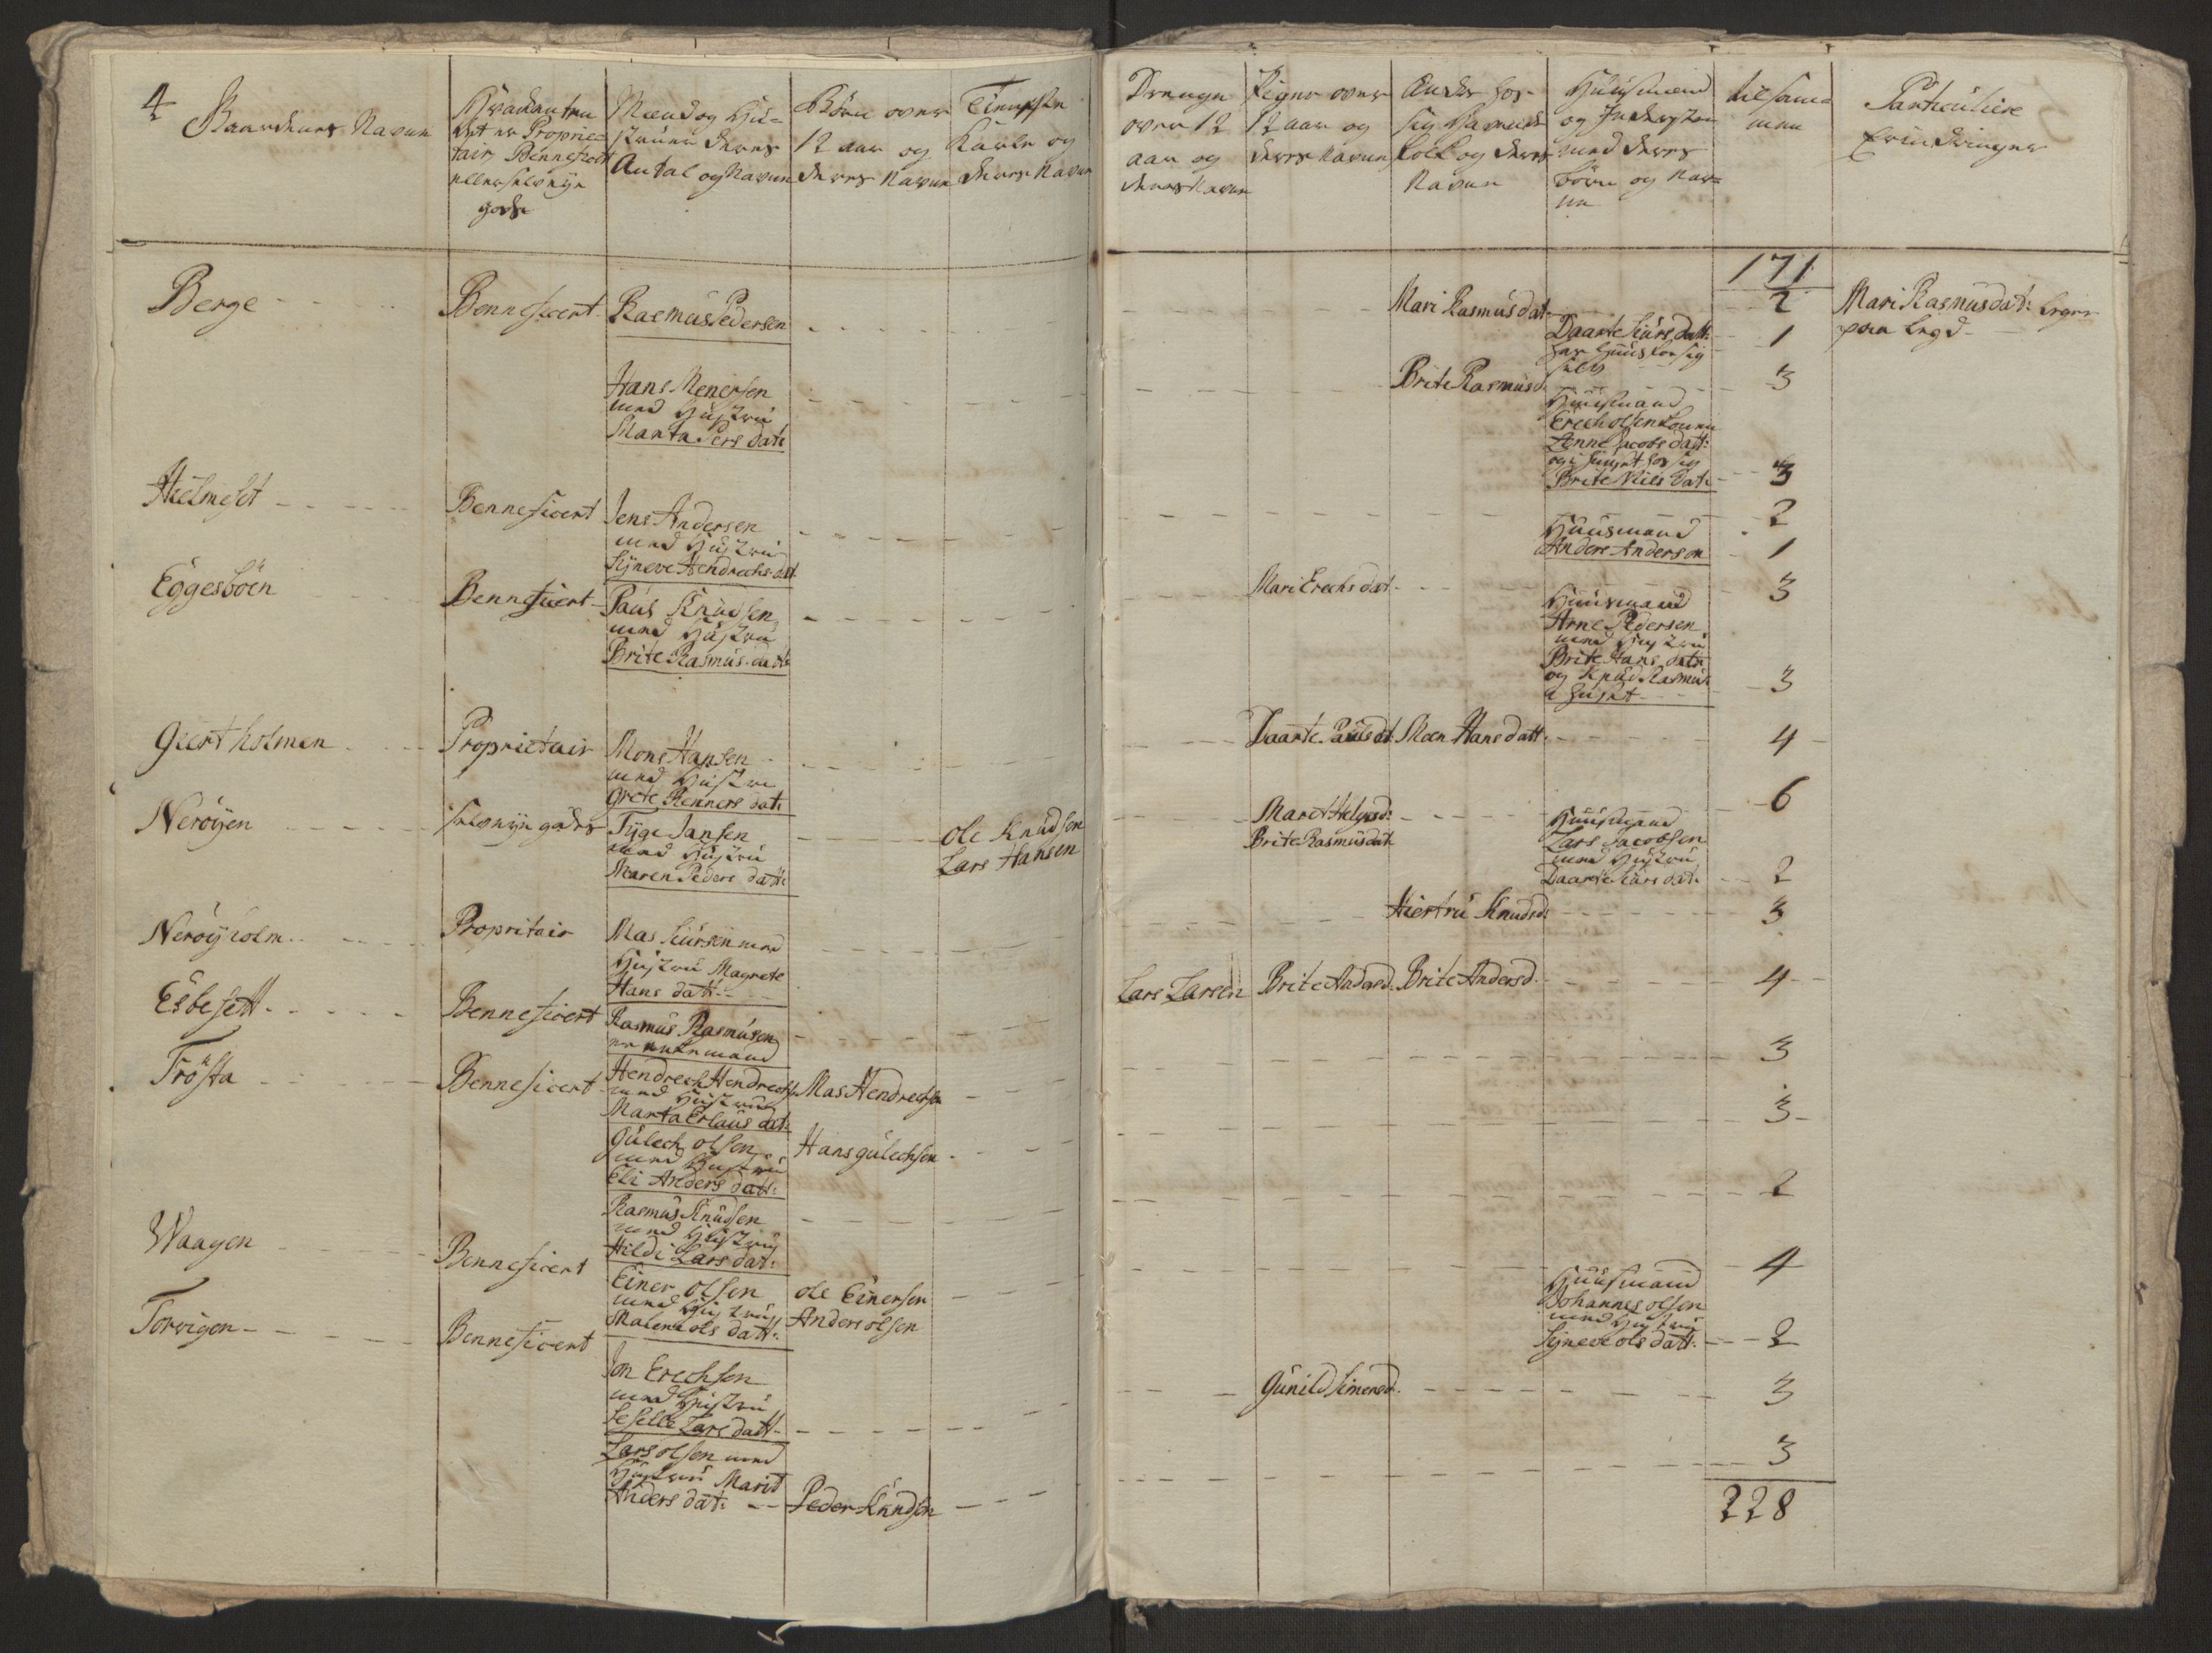 4
Gaardenes Navne
Hvad enten
det er Proprie-
tair, Benneficert
eller selv eye
gods
Mænd og Hu-
struer deres
Antal og Navne
Børn over
12 aar og
deres Navne
Tieniste
Karle og
deres Navne
Drenge
over 12
aar og
deres Navne
Piger over
12 aar og
deres Navne
Andre hos
sig havende
folk og deres
Navne
Huusmænd
og Inderster
med deres
børn og Nav-
ne
tilsam-
men
Particulire
Erindringer
171
Berge
Bennficert
Rasmus Pedersen
Mari Rasmusdat:
2
Mari Rasmusdat: leger
paa legd
Daarte Siurs datt:
har Huus for sig
selv
1
Hans Menersen
med Hustru
Marta Pers dat:
Brite Rasmusd:
3
Huusmand
Erech olsen
Enne Jacobs datt:
Brite Niels dat:
3
Hielmset
Benneficert
Jens Andersen
med Hustru
Syneve Hendrechs dat
2
Huusmand
Anders Anderson
1
Eggesböen
Benneficert
Paul Knudsen
med Hustru
Brite Rasmus datt:
Mari Erechs dat
3
Huusmand
Arne Pedersen
med Hustru
Brite Hans datt:
og Knud Rasmus
3
Geertholmen
Proprietair
Mons Hansen
med Hustru
Grete Renners dat:
Daarte Pauls d:
Maren Hans datt:
4
Neröyen
selv eye gods
Tyge Jansen
med Hustru
Maren Peders datt:
ole Knudsen
Lars Hansen
Maret Helgesd:
Brite Rasmusdat
6
Huusmand
Lars Jacobsen
med Hustru
Daarte Siurs dat:
2
Neröyholm
Propritair
Mas Siursen med
Hustru Magrete
Hans datt:
Hiertru Knudsd:
3
Esbesett
Benneficert
Rasmus Rasmusen
er enkemand
Lars Larsen
Brite Andersd:
Brite Andersd.
4
Trösta
Benneficert
Hendrech Hendrechs:
med Hustru
Marta Erlaus dat:
Mas Hendrechsen
3
Gulech olsen
med Hustru
Eli Anders datt:
Hans Gulechsen
3
Rasmus Knudsen
med Hustru
Hildi Lars dat:
2
Waagen
Benneficert
Einer olsen
med Hustru
Malene ols datt:
ole Einersen
Anders olsen
4
Huusmand
Johannes olsen
med Hustru
Syneve ols datt:
2
Torvigen
Benneficert
Jon Erechsen
med Hustru
Seselle Lars datt
Gunild Simensd.
3
Lars olsen med
Hustru Marit
Anders dat:
Peder Knudsen
3
228